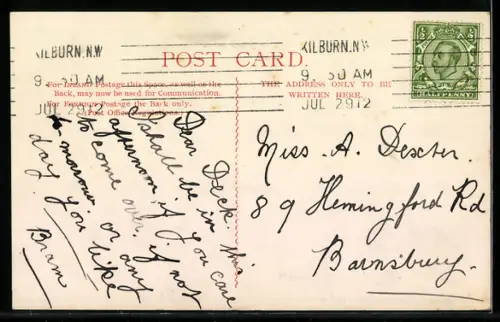 KILBURN.N.W
9. 30 AM
JUL 29 12
KILBURN.N.W
9. 30 AM
JUL 29 12
POST CARD.
For INLAND Postage this Space, as well as the
Back, may now be used for Communication.
For FOREIGN Postage the Back only.
(Post Office Regulations.)
THE ADDRESS ONLY TO BE
WRITTEN HERE.
HALFPENNY
Dear Deck.
I shall be in this
afternoon if you care
to come over. if not
to morrow. or any
day you like
Bram
Miss A. Dexter.
89 Hemingford Rd
Barnsbury.